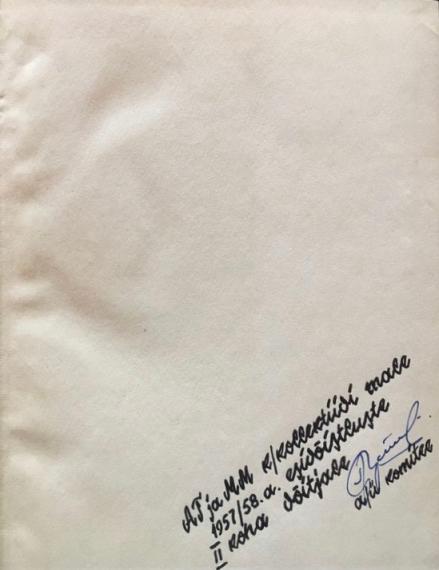 AT ja MM k/kollektiidi male
1957/58.a. esivõistluste
II koha võitjale
a/ü komitee